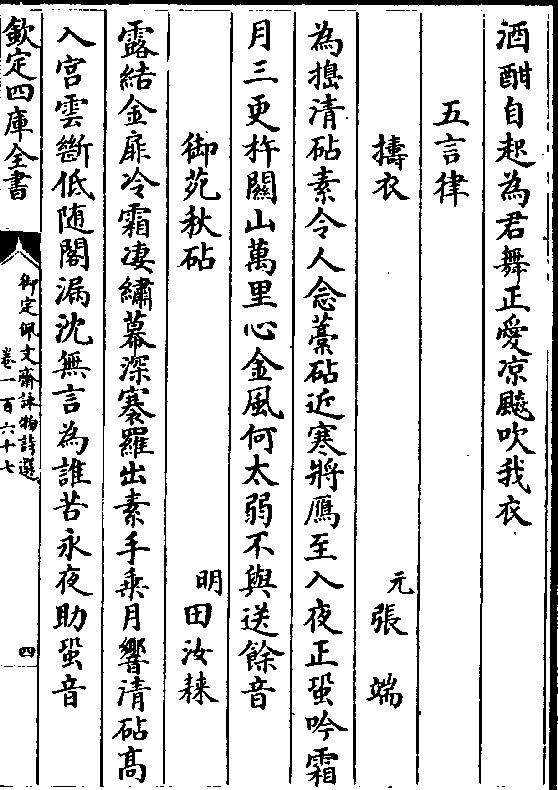 酒酣自起為君舞正愛凉飈吹我衣
五言律
擣衣
元張端
為搗清砧素令人念藁砧近寒將鴈至入夜正蛩吟霜
月三更杵關山萬里心金風何太弱不與送餘音
御苑秋砧
明田汝𦓝
露結金扉冷霜凄繡幕深褰羅出素手乘月響清砧高
入宮雲斷低随閣漏沈無言為誰苦永夜助蛩音
欽定四庫全書
御定佩文齋詠物詩選
卷一百六十七
四